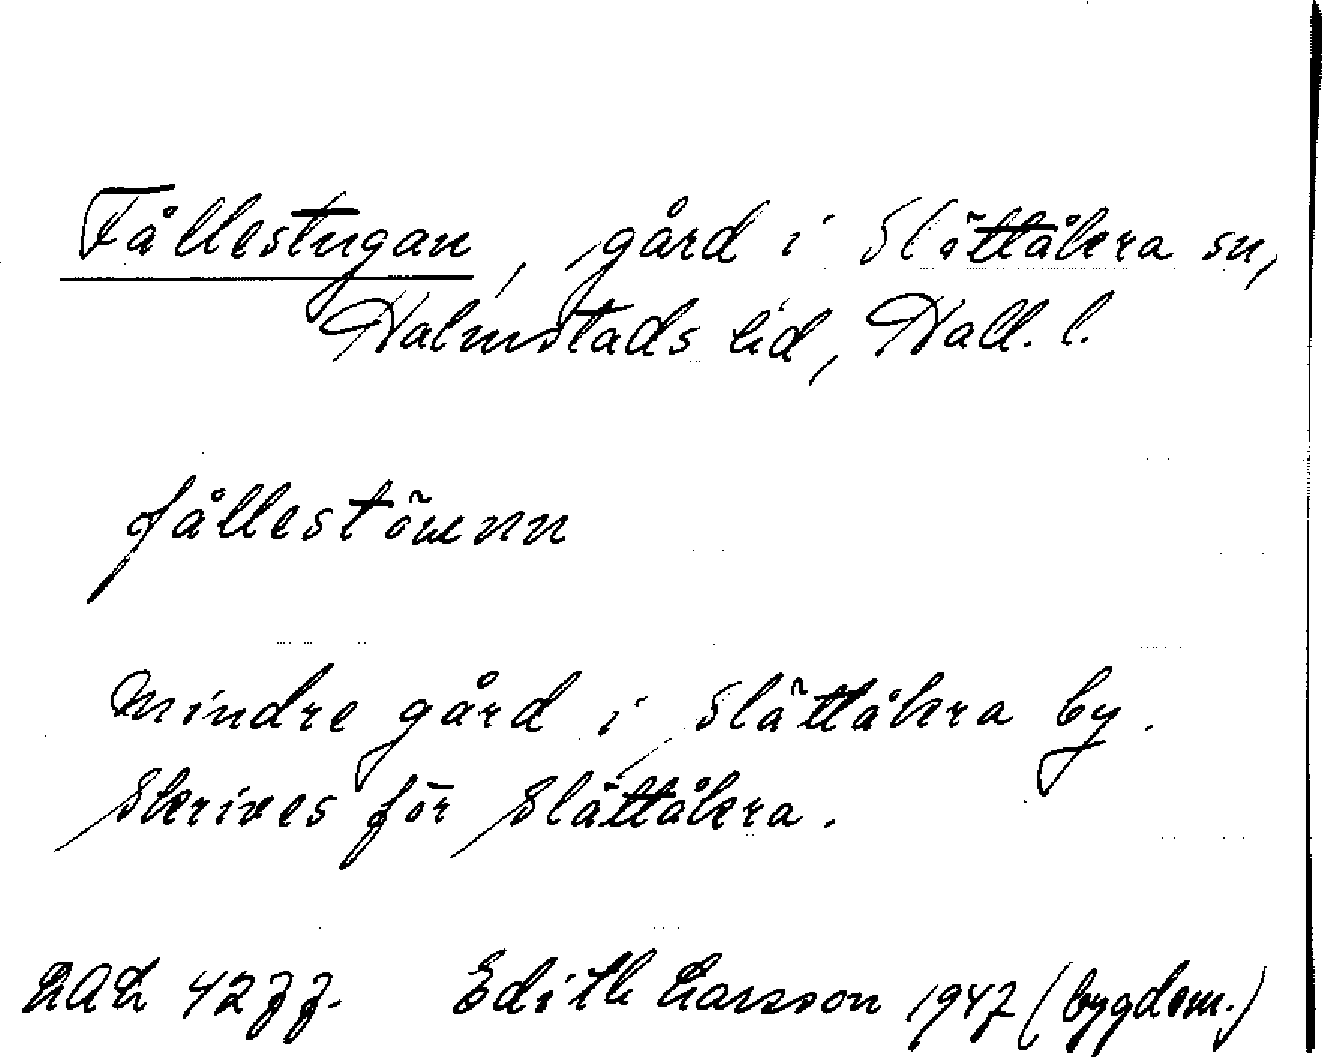 Fållestugan, gård i Slättåkra sn,
Halmstads hd, Hall. l.
fållestöwenn
Mindre gård i Slättåkra by.
Skrives för Slättåkra.
4277. Edith Larsson 1947 (bygdem.)